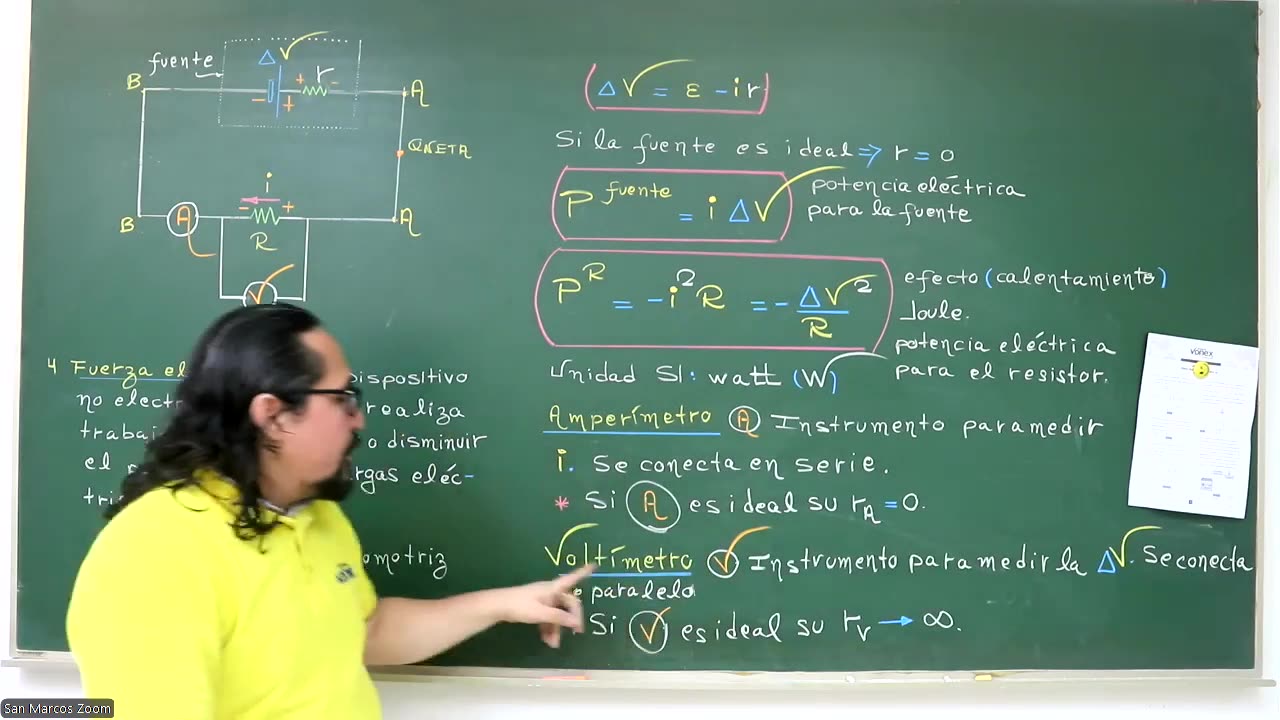 fuente
ΔV
+ r -
- +
B
A
QNETA
i
- +
B
A
A
R
V
4 Fuerza el
Dispositivo
no elect
realiza
o disminuir
el
rgas eléc-
omotriz
ΔV = ε - ir
Si la fuente es ideal ⇒ r = 0
P fuente = i ΔV
potencia eléctrica
para la fuente
P^R = -i²R = - ΔV²/R
efecto (calentamiento)
Joule.
potencia eléctrica
para el resistor.
Unidad SI: watt (W)
Amperímetro A Instrumento para medir
i. Se conecta en serie.
* Si A es ideal su r_A = 0.
Voltímetro V Instrumento para medir la ΔV. Se conecta
paralelo
Si V es ideal su r_V → ∞.
vonex
San Marcos Zoom